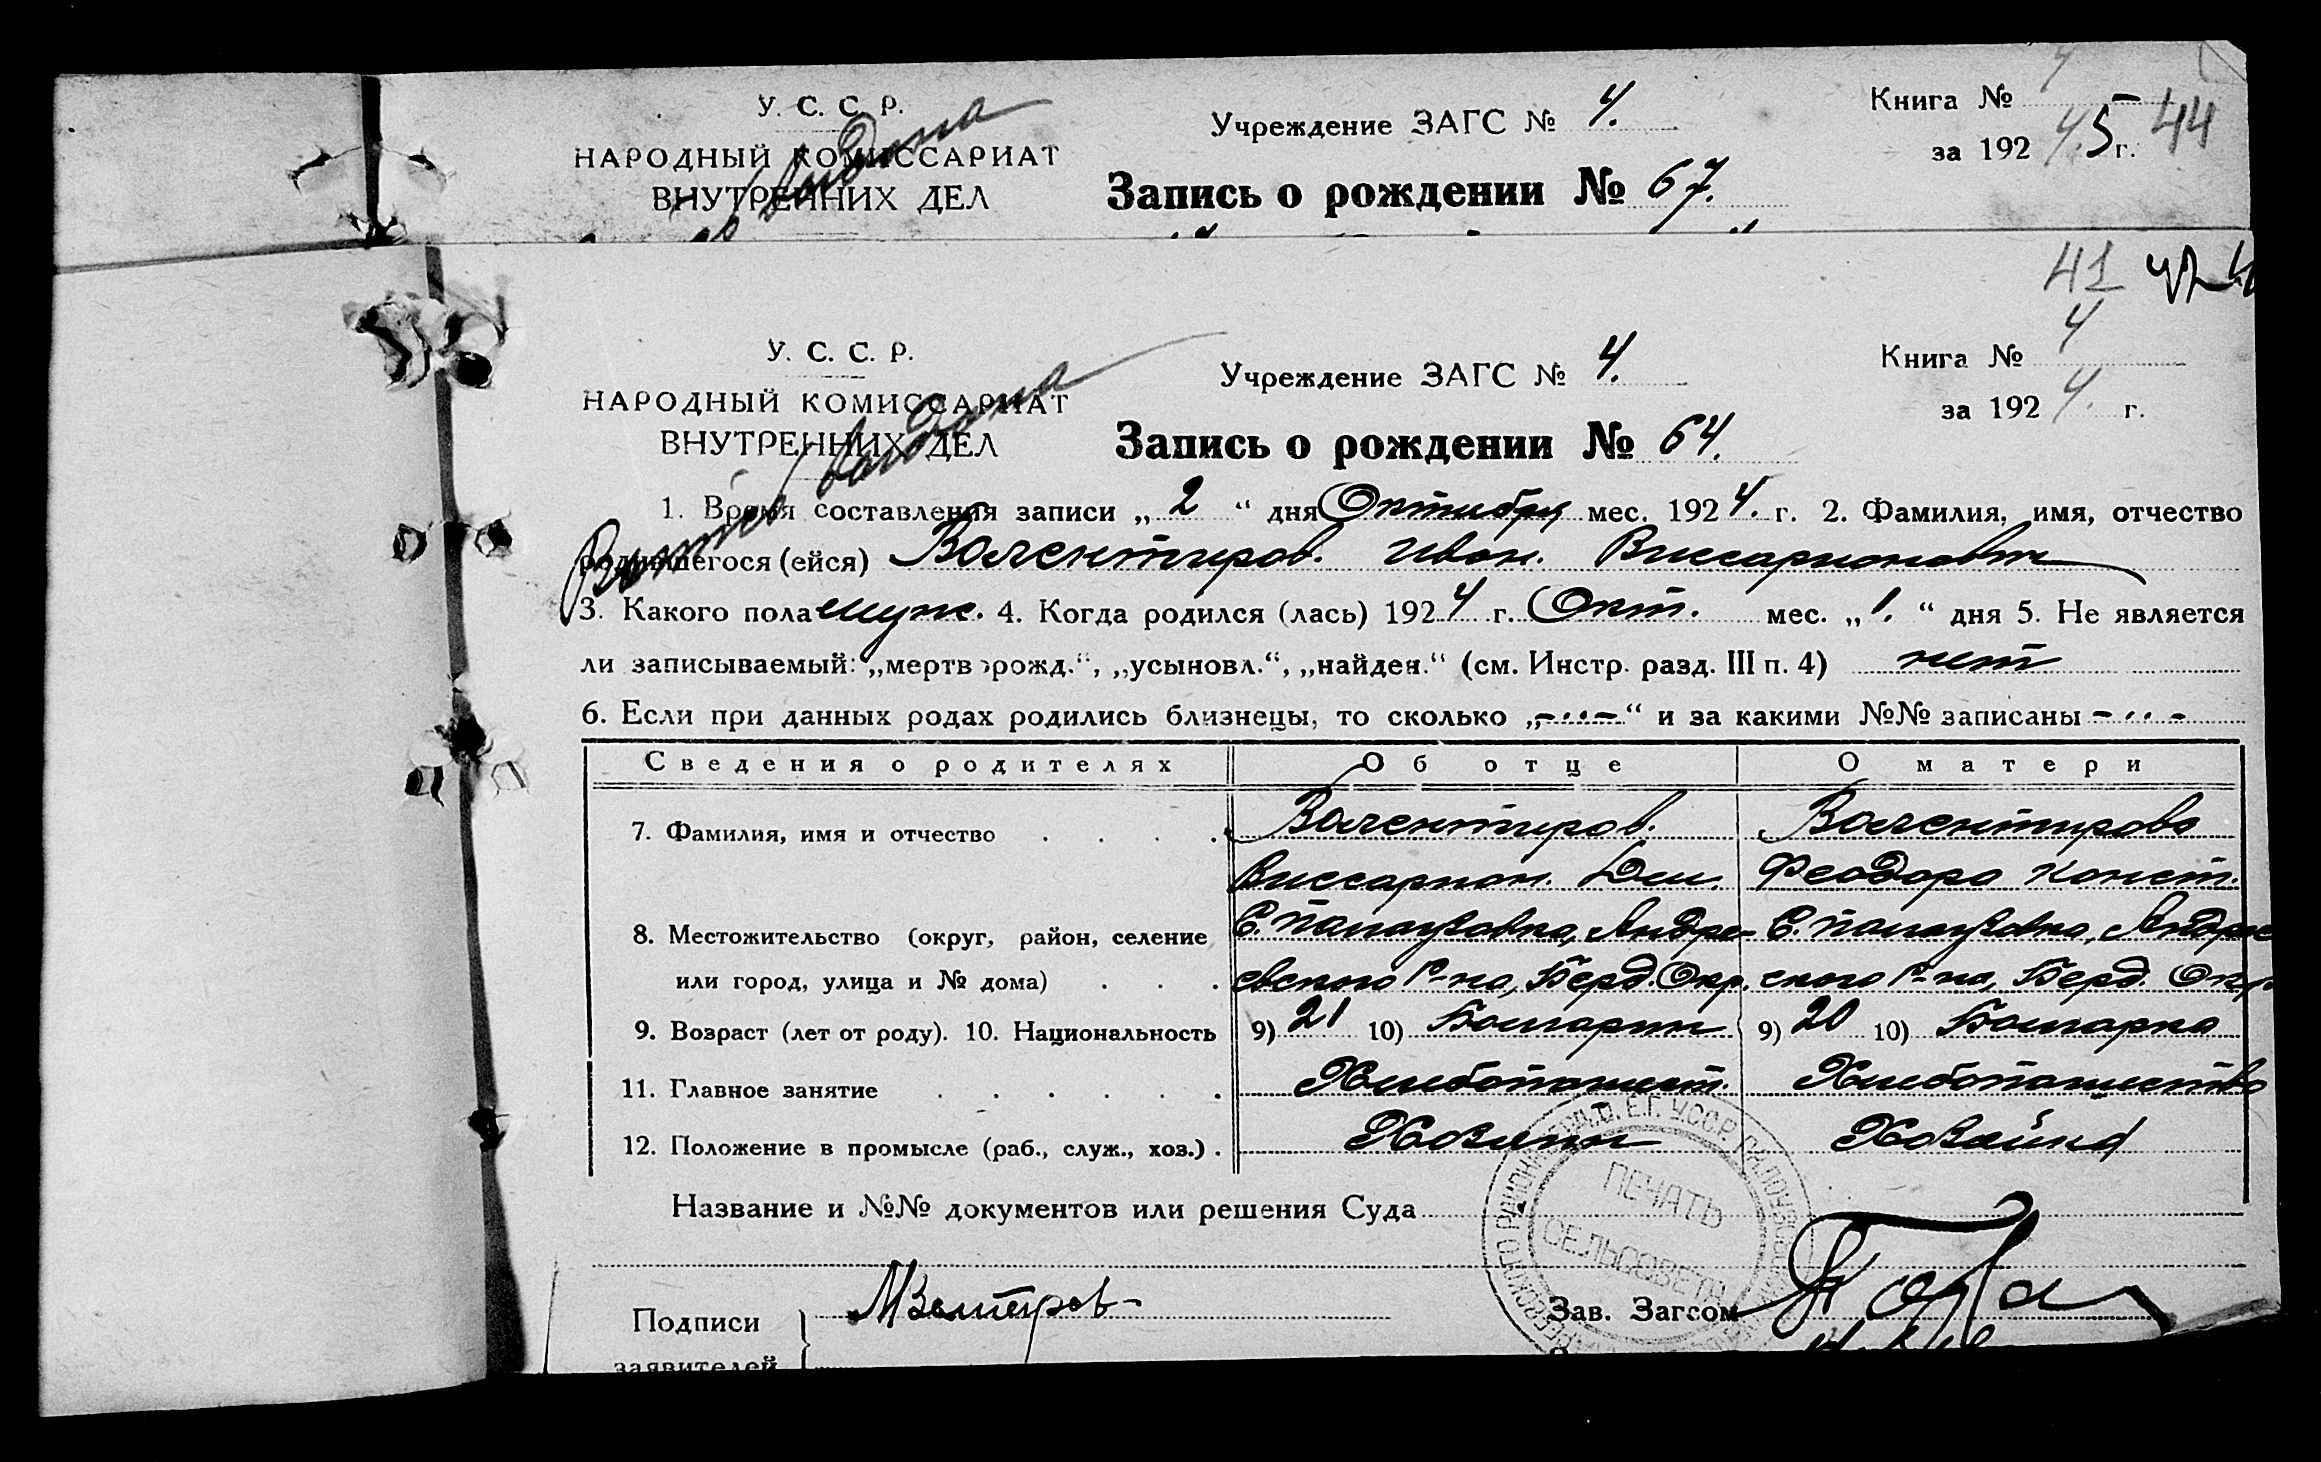 У. С. С. Р.
Учреждение ЗАГС № 4.
Книга № 4
НАРОДНЫЙ КОМИССАРИАТ
за 192 4. 5 г. 44
ВНУТРЕННИХ ДЕЛ
Запись о рождении № 67.
41
У. С. С. Р.
Учреждение ЗАГС № 4.
Книга № 4
НАРОДНЫЙ КОМИССАРИАТ
за 192 4. г.
ВНУТРЕННИХ ДЕЛ
Запись о рождении № 64.
1. Время составления записи „ 2 “ дня Октября мес. 192 4. г. 2. Фамилия, имя, отчество
родившегося (ейся) Валентиров. Иван. Виссарионович
3. Какого пола муж. 4. Когда родился (лась) 192 4 г. Окт. мес. „ 1. “ дня 5. Не является
ли записываемый: „мертворожд.“, „усыновл.“, „найден.“ (см. Инстр. разд. III п. 4) нет
6. Если при данных родах родились близнецы, то сколько „-··-“ и за какими №№ записаны -··-
Сведения о родителях
Об отце
О матери
7. Фамилия, имя и отчество . . . .
Валентиров.
Виссарион. Дм.
Валентирова
Феодора Конст.
8. Местожительство (округ, район, селение
или город, улица и № дома) . . .
С. Палаузовка, Андре-
евского Р-на, Берд. Окр.
С. Палаузовка, Андрее
ского Р-на, Берд. Окр.
9. Возраст (лет от роду). 10. Национальность
9) 21 10) Болгарин
9) 20 10) Болгарка
11. Главное занятие . . . . . .
Хлебопашест.
Хлебопашество
12. Положение в промысле (раб., служ., хоз.) .
Хозяин
Хозайка
Название и №№ документов или решения Суда
ПЕЧАТЬ
СЕЛЬСОВЕТА
Подписи
заявителей
Зав. Загсом